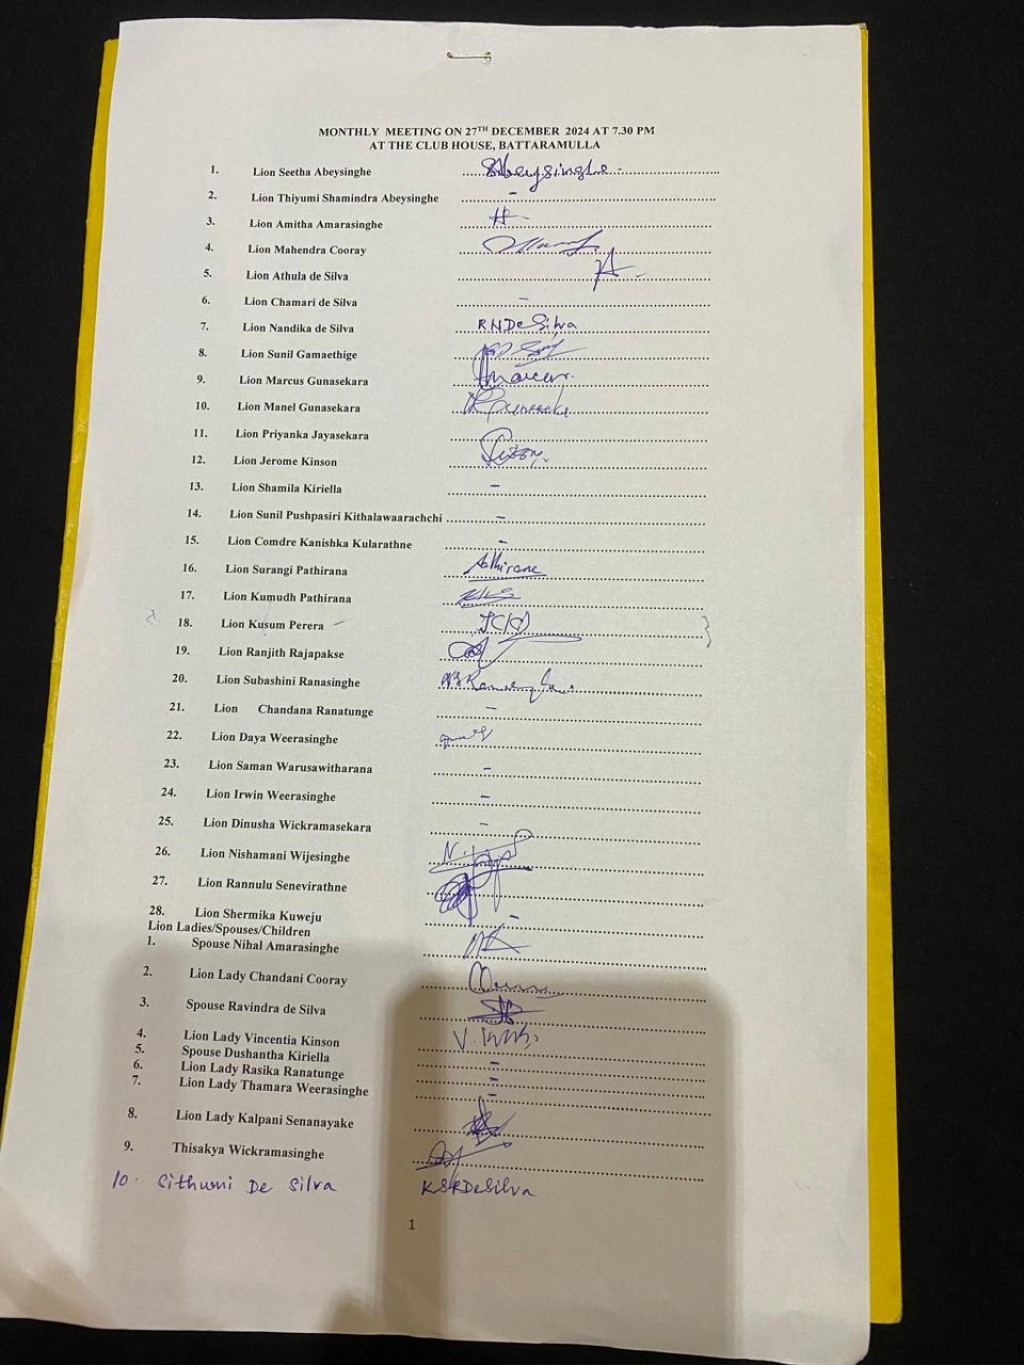 MONTHLY MEETING ON 27TH DECEMBER 2024 AT 7.30 PM
AT THE CLUB HOUSE, BATTARAMULLA
1. Lion Seetha Abeysinghe ..... SAbeysinghe
2. Lion Thiyumi Shamindra Abeysinghe ..... -
3. Lion Amitha Amarasinghe .....
4. Lion Mahendra Cooray .....
5. Lion Athula de Silva .....
6. Lion Chamari de Silva ..... -
7. Lion Nandika de Silva ..... RNDeSilva
8. Lion Sunil Gamaethige .....
9. Lion Marcus Gunasekara .....
10. Lion Manel Gunasekara .....
11. Lion Priyanka Jayasekara .....
12. Lion Jerome Kinson .....
13. Lion Shamila Kiriella ..... -
14. Lion Sunil Pushpasiri Kithalawaarachchi ..... -
15. Lion Comdre Kanishka Kularathne ..... -
16. Lion Surangi Pathirana .....
17. Lion Kumudh Pathirana .....
18. Lion Kusum Perera .....
19. Lion Ranjith Rajapakse .....
20. Lion Subashini Ranasinghe .....
21. Lion Chandana Ranatunge ..... -
22. Lion Daya Weerasinghe .....
23. Lion Saman Warusawitharana ..... -
24. Lion Irwin Weerasinghe ..... -
25. Lion Dinusha Wickramasekara ..... -
26. Lion Nishamani Wijesinghe .....
27. Lion Rannulu Senevirathne .....
28. Lion Shermika Kuweju ..... -
Lion Ladies/Spouses/Children
1. Spouse Nihal Amarasinghe .....
2. Lion Lady Chandani Cooray .....
3. Spouse Ravindra de Silva .....
4. Lion Lady Vincentia Kinson .....
5. Spouse Dushantha Kiriella ..... -
6. Lion Lady Rasika Ranatunge ..... -
7. Lion Lady Thamara Weerasinghe ..... -
8. Lion Lady Kalpani Senanayake .....
9. Thisakya Wickramasinghe .....
10. Sithumi De Silva KSRDeSilva
1